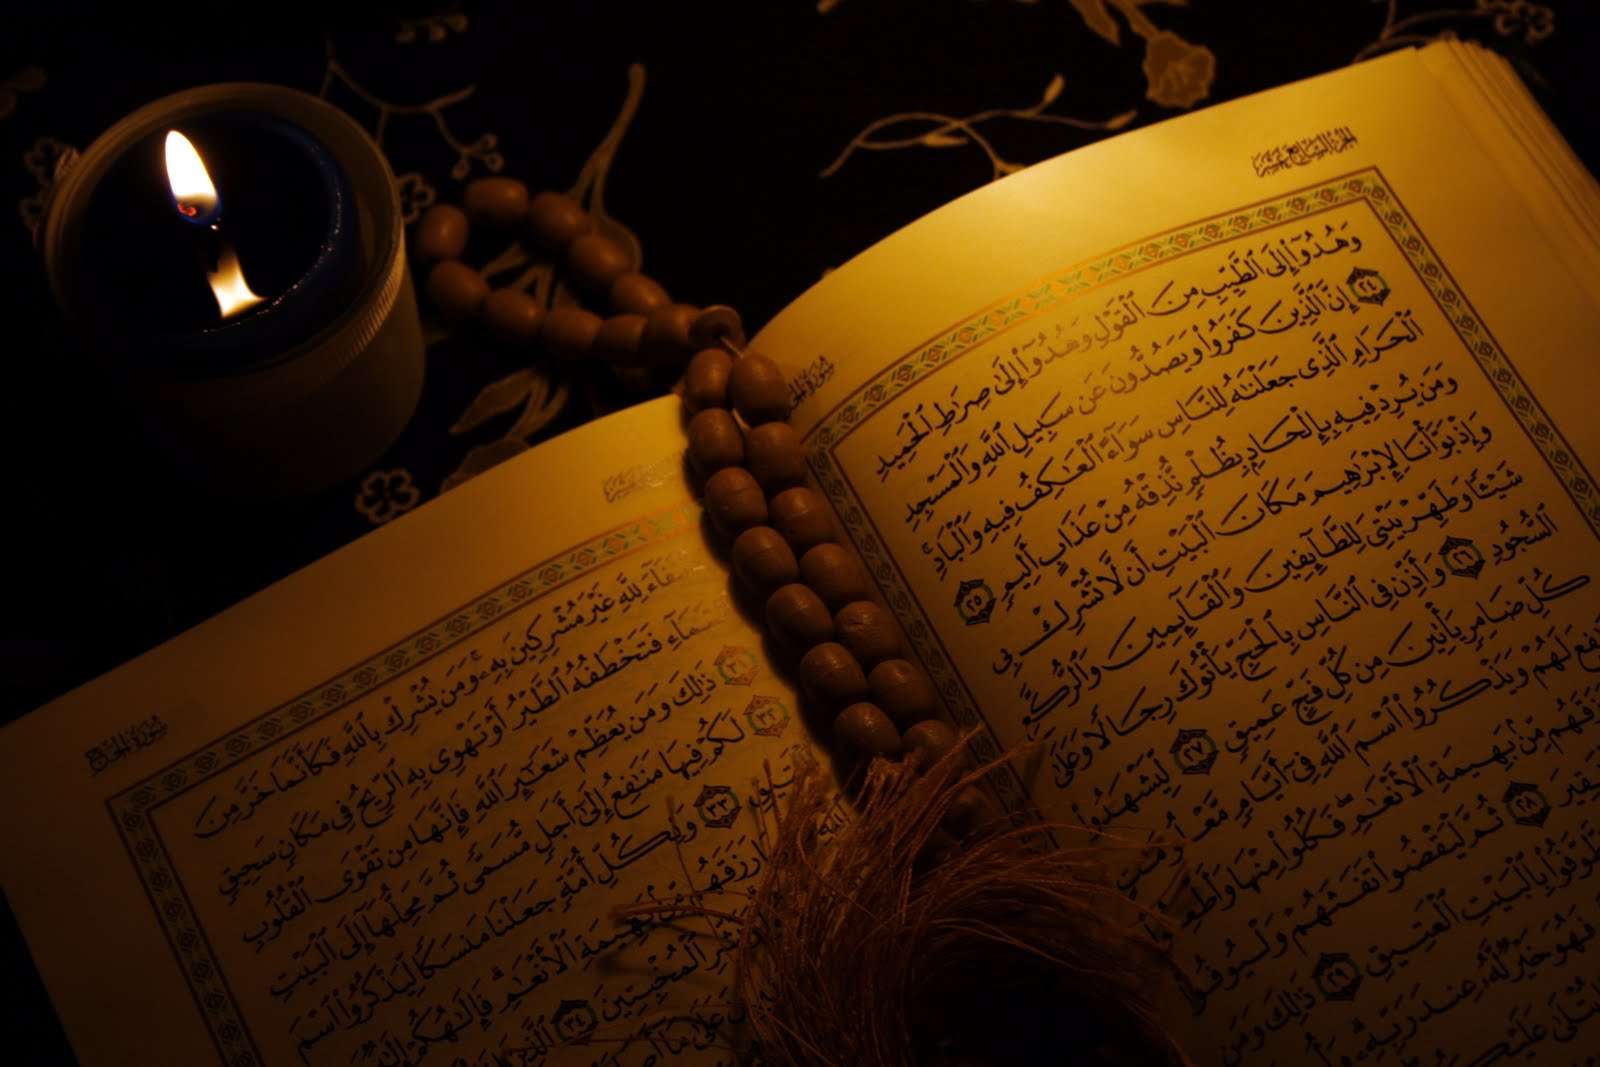 الجزء السابع عشر
وَهُدُوٓا۟ إِلَى ٱلطَّيِّبِ مِنَ ٱلْقَوْلِ وَهُدُوٓا۟ إِلَىٰ صِرَٰطِ ٱلْحَمِيدِ
٢٤ إِنَّ ٱلَّذِينَ كَفَرُوا۟ وَيَصُدُّونَ عَن سَبِيلِ ٱللَّهِ وَٱلْمَسْجِدِ
ٱلْحَرَامِ ٱلَّذِى جَعَلْنَٰهُ لِلنَّاسِ سَوَآءً ٱلْعَٰكِفُ فِيهِ وَٱلْبَادِ ۚ
وَمَن يُرِدْ فِيهِ بِإِلْحَادٍۭ بِظُلْمٍ نُّذِقْهُ مِنْ عَذَابٍ أَلِيمٍ ٢٥
وَإِذْ بَوَّأْنَا لِإِبْرَٰهِيمَ مَكَانَ ٱلْبَيْتِ أَن لَّا تُشْرِكْ بِى
شَيْـًٔا وَطَهِّرْ بَيْتِىَ لِلطَّآئِفِينَ وَٱلْقَآئِمِينَ وَٱلرُّكَّعِ
ٱلسُّجُودِ ٢٦ وَأَذِّن فِى ٱلنَّاسِ بِٱلْحَجِّ يَأْتُوكَ رِجَالًا وَعَلَىٰ
كُلِّ ضَامِرٍ يَأْتِينَ مِن كُلِّ فَجٍّ عَمِيقٍ ٢٧ لِّيَشْهَدُوا۟
لَهُمْ وَيَذْكُرُوا۟ ٱسْمَ ٱللَّهِ فِىٓ أَيَّامٍ مَّعْلُومَٰتٍ
مِّنۢ بَهِيمَةِ ٱلْأَنْعَٰمِ ۖ فَكُلُوا۟ مِنْهَا وَأَطْعِمُوا۟
٢٨ ثُمَّ لْيَقْضُوا۟ تَفَثَهُمْ وَلْيُوفُوا۟
بِٱلْبَيْتِ ٱلْعَتِيقِ ٢٩ ذَٰلِكَ وَمَن
فَهُوَ خَيْرٌ لَّهُۥ عِندَ رَبِّهِۦ ۗ
يُتْلَىٰ عَلَيْكُمْ
سورة الحج
غَيْرَ مُشْرِكِينَ بِهِۦ ۚ وَمَن يُشْرِكْ بِٱللَّهِ فَكَأَنَّمَا خَرَّ مِنَ
ٱلسَّمَآءِ فَتَخْطَفُهُ ٱلطَّيْرُ أَوْ تَهْوِى بِهِ ٱلرِّيحُ فِى مَكَانٍ سَحِيقٍ
٣١ ذَٰلِكَ وَمَن يُعَظِّمْ شَعَٰٓئِرَ ٱللَّهِ فَإِنَّهَا مِن تَقْوَى ٱلْقُلُوبِ
٣٢ لَكُمْ فِيهَا مَنَٰفِعُ إِلَىٰٓ أَجَلٍ مُّسَمًّى ثُمَّ مَحِلُّهَآ إِلَى ٱلْبَيْتِ
٣٣ وَلِكُلِّ أُمَّةٍ جَعَلْنَا مَنسَكًا لِّيَذْكُرُوا۟ ٱسْمَ
بَهِيمَةِ ٱلْأَنْعَٰمِ ۗ فَإِلَٰهُكُمْ إِلَٰهٌ
ٱلْمُخْبِتِينَ ٣٤ ٱلَّذِينَ
عَلَىٰ مَآ